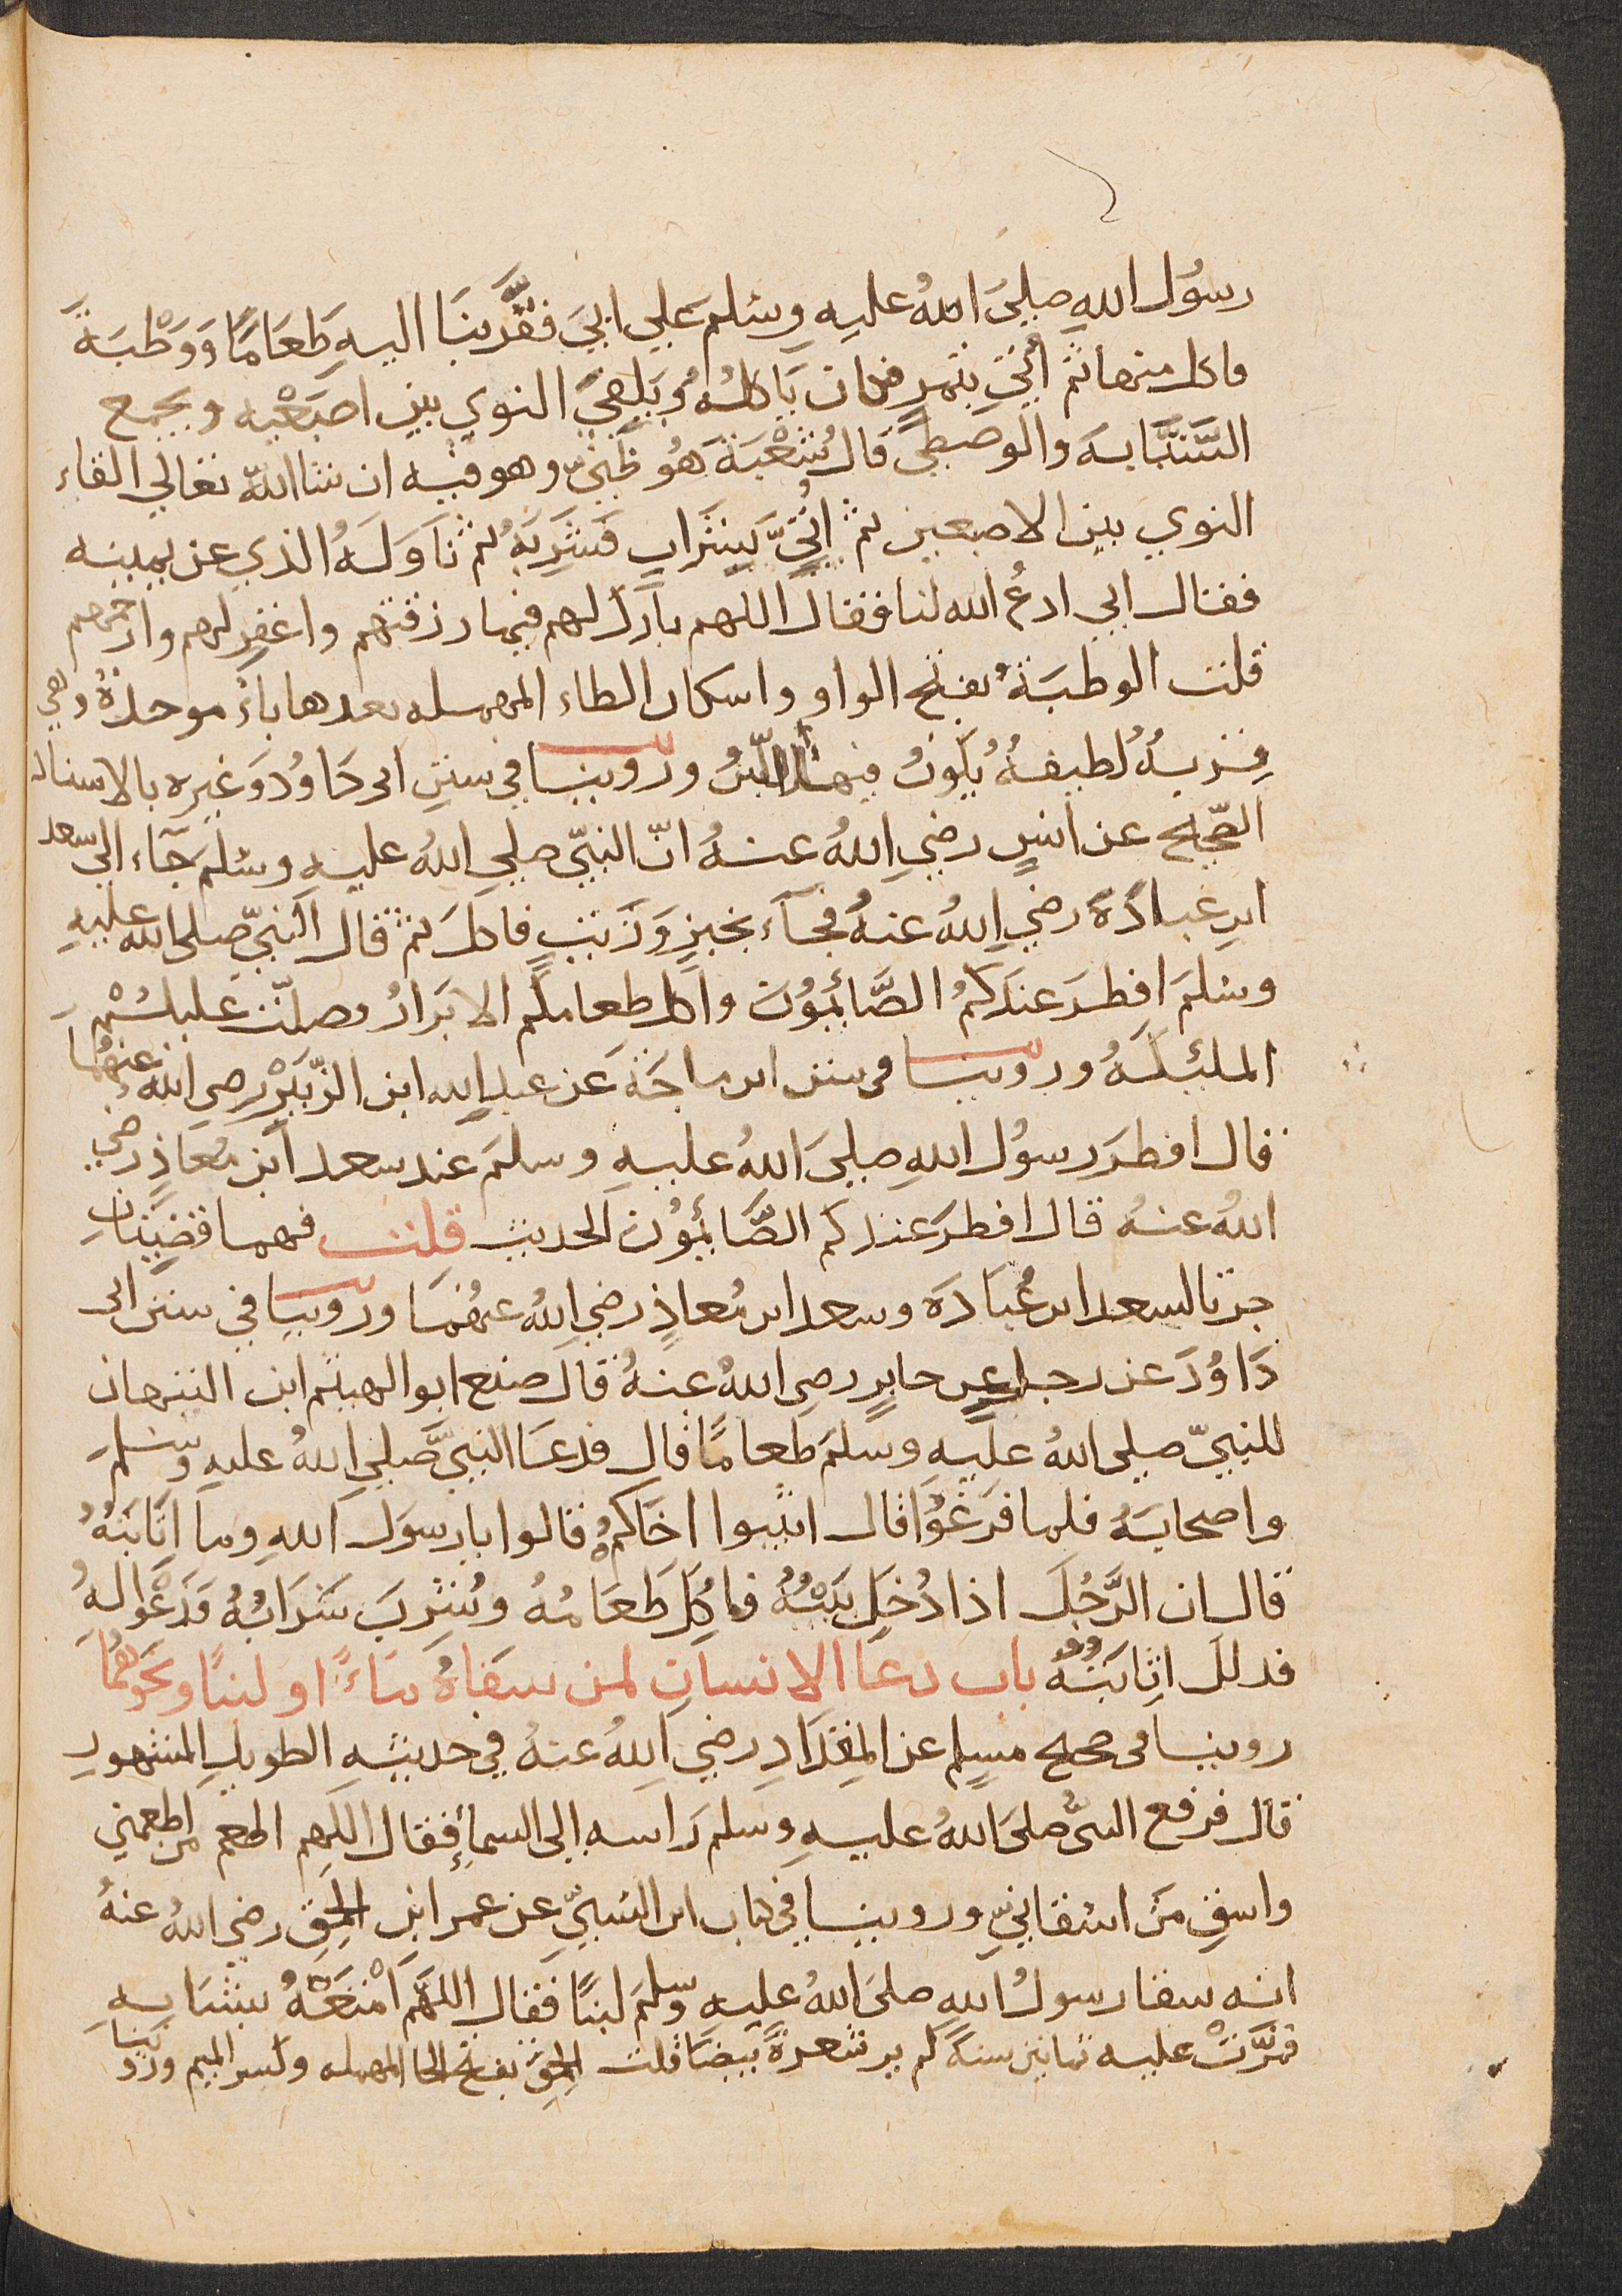 رسُول اللهِ صلىَ اللهُ عليهِ وسَلمَ علي ابيَ فقرَّبنَا اليهِ طَعَامًا وَوَطْبَةً
فاكل منها ثم أُتيَ بتمرٍ فكان يَاكلهُ وُيَلقيَ النوي بين اصبَعْيه ويجمع
السَّبَّابهَ والوصطيَ قالَ شُعْبَة هُو ظَنيّ وهو فيه ان شا اللهَّ تعالي القاء
النوي بين الاصبعين ثم أُتيَّ بِشَرابٍ فشَرِبَهُ ثم نَاوَلَهُ الذي عن يمينه
فقال ابي ادعُ الله لنا فقال اللهم بارك لهم فيما رزقتهم واغفر لهم وارحمهم
قلت الوطبَةُ بفتح الواو واسكان الطاء المهمله بعدها باءٌ موحدةٌ وهي
قِربهٌ لطيفهٌ يكونُ فيها اللبنُ وروينا في سننِ ابي داوُدَ وَغيره بالاسناد
الصّحيح عن انسٍ رضي اللهُ عنهُ انّ النبيّ صلي اللهُ عليهِ وسَلمَ جَآء الي سعد
ابن عبادَةَ رضي اللهُ عنهُ فجَآء بخبزٍ وَزَيتٍ فاكلَ ثم قال النبيّ صلى الله عليهِ
وسَلمَ افطرَ عندَكمُ الصَّائمُونَ واكل طعامكم الابَرارُ وصلّت عَليكُمْ
الملئِكَهُ وروينا في سنن ابن ماجَة عَن عبدِ الله ابن الزّبَيْر رضي الله عنهُمَا
قال افطرَ رسوُل اللهِ صليَ اللهُ عليهِ وسلمَ عند سعد ابن مُعاذٍ رضي
اللهُ عنهُ قال افطرَ عندكم الصَّائمُونَ الحديث قلت فهما قضيَّتانِ
جرتا لسعد ابن عُبَادَة وسعد ابن مُعاذٍ رضي اللهُ عنهُمَا وروينا في سنن ابى
دَاوُدَ عن رجل عن جابرٍ رضي اللهُ عنهُ قال صنع ابو الهيثم ابن التيهان
للنبيّ صلي اللهُ عليهِ وسلمَ طعامًا قال فدعَا النبيَّ صَلي اللهُ عليهِ وسَلمَ
واصحابهُ فلما فرَغُوا قال اثيبوا اخَاكمُ قالوا يا رسوَل اللهِ وما اثَابَتهُ
قال ان الرَّجُلَ اذا دُخِلَ بَيْتُهُ فاكِلَ طَعَامُهُ وشُرِبَ شَرَابُهُ فَدَعُوا لهُ
فدلك اثِابَتُهُ باب دعَا الانسان لمن سقاهُ ماءً او لبنًا ونحوهُمَا
روينا في صحيح مسلِم عن المِقدَادِ رضي اللهُ عنهُ في حديثهِ الطويلِ المشهورِ
قال فرفع النبىُّ صلىَ اللهُ عليهِ وسلم رَاسه الي السماءِ فقال اللهم اطعم من اطعمني
واسقِ مَن اسْقانيِّ وروينا في كتاب ابن السُنيّ عن عمر ابن الحَمِق رضي اللهُ عنهُ
انه سقا رسولُ اللهِ صلىَ اللهُ عليهِ وسلمَ لبنًا فقال اللهَّم امْتِعَهُ بشَبَابهِ
فمرَّتْ عليه ثمانين سنةً لم ير شعرةً بَيضَا قلت الحَمِق بفتح الحا المهمله وكسر الميم ورَوينا